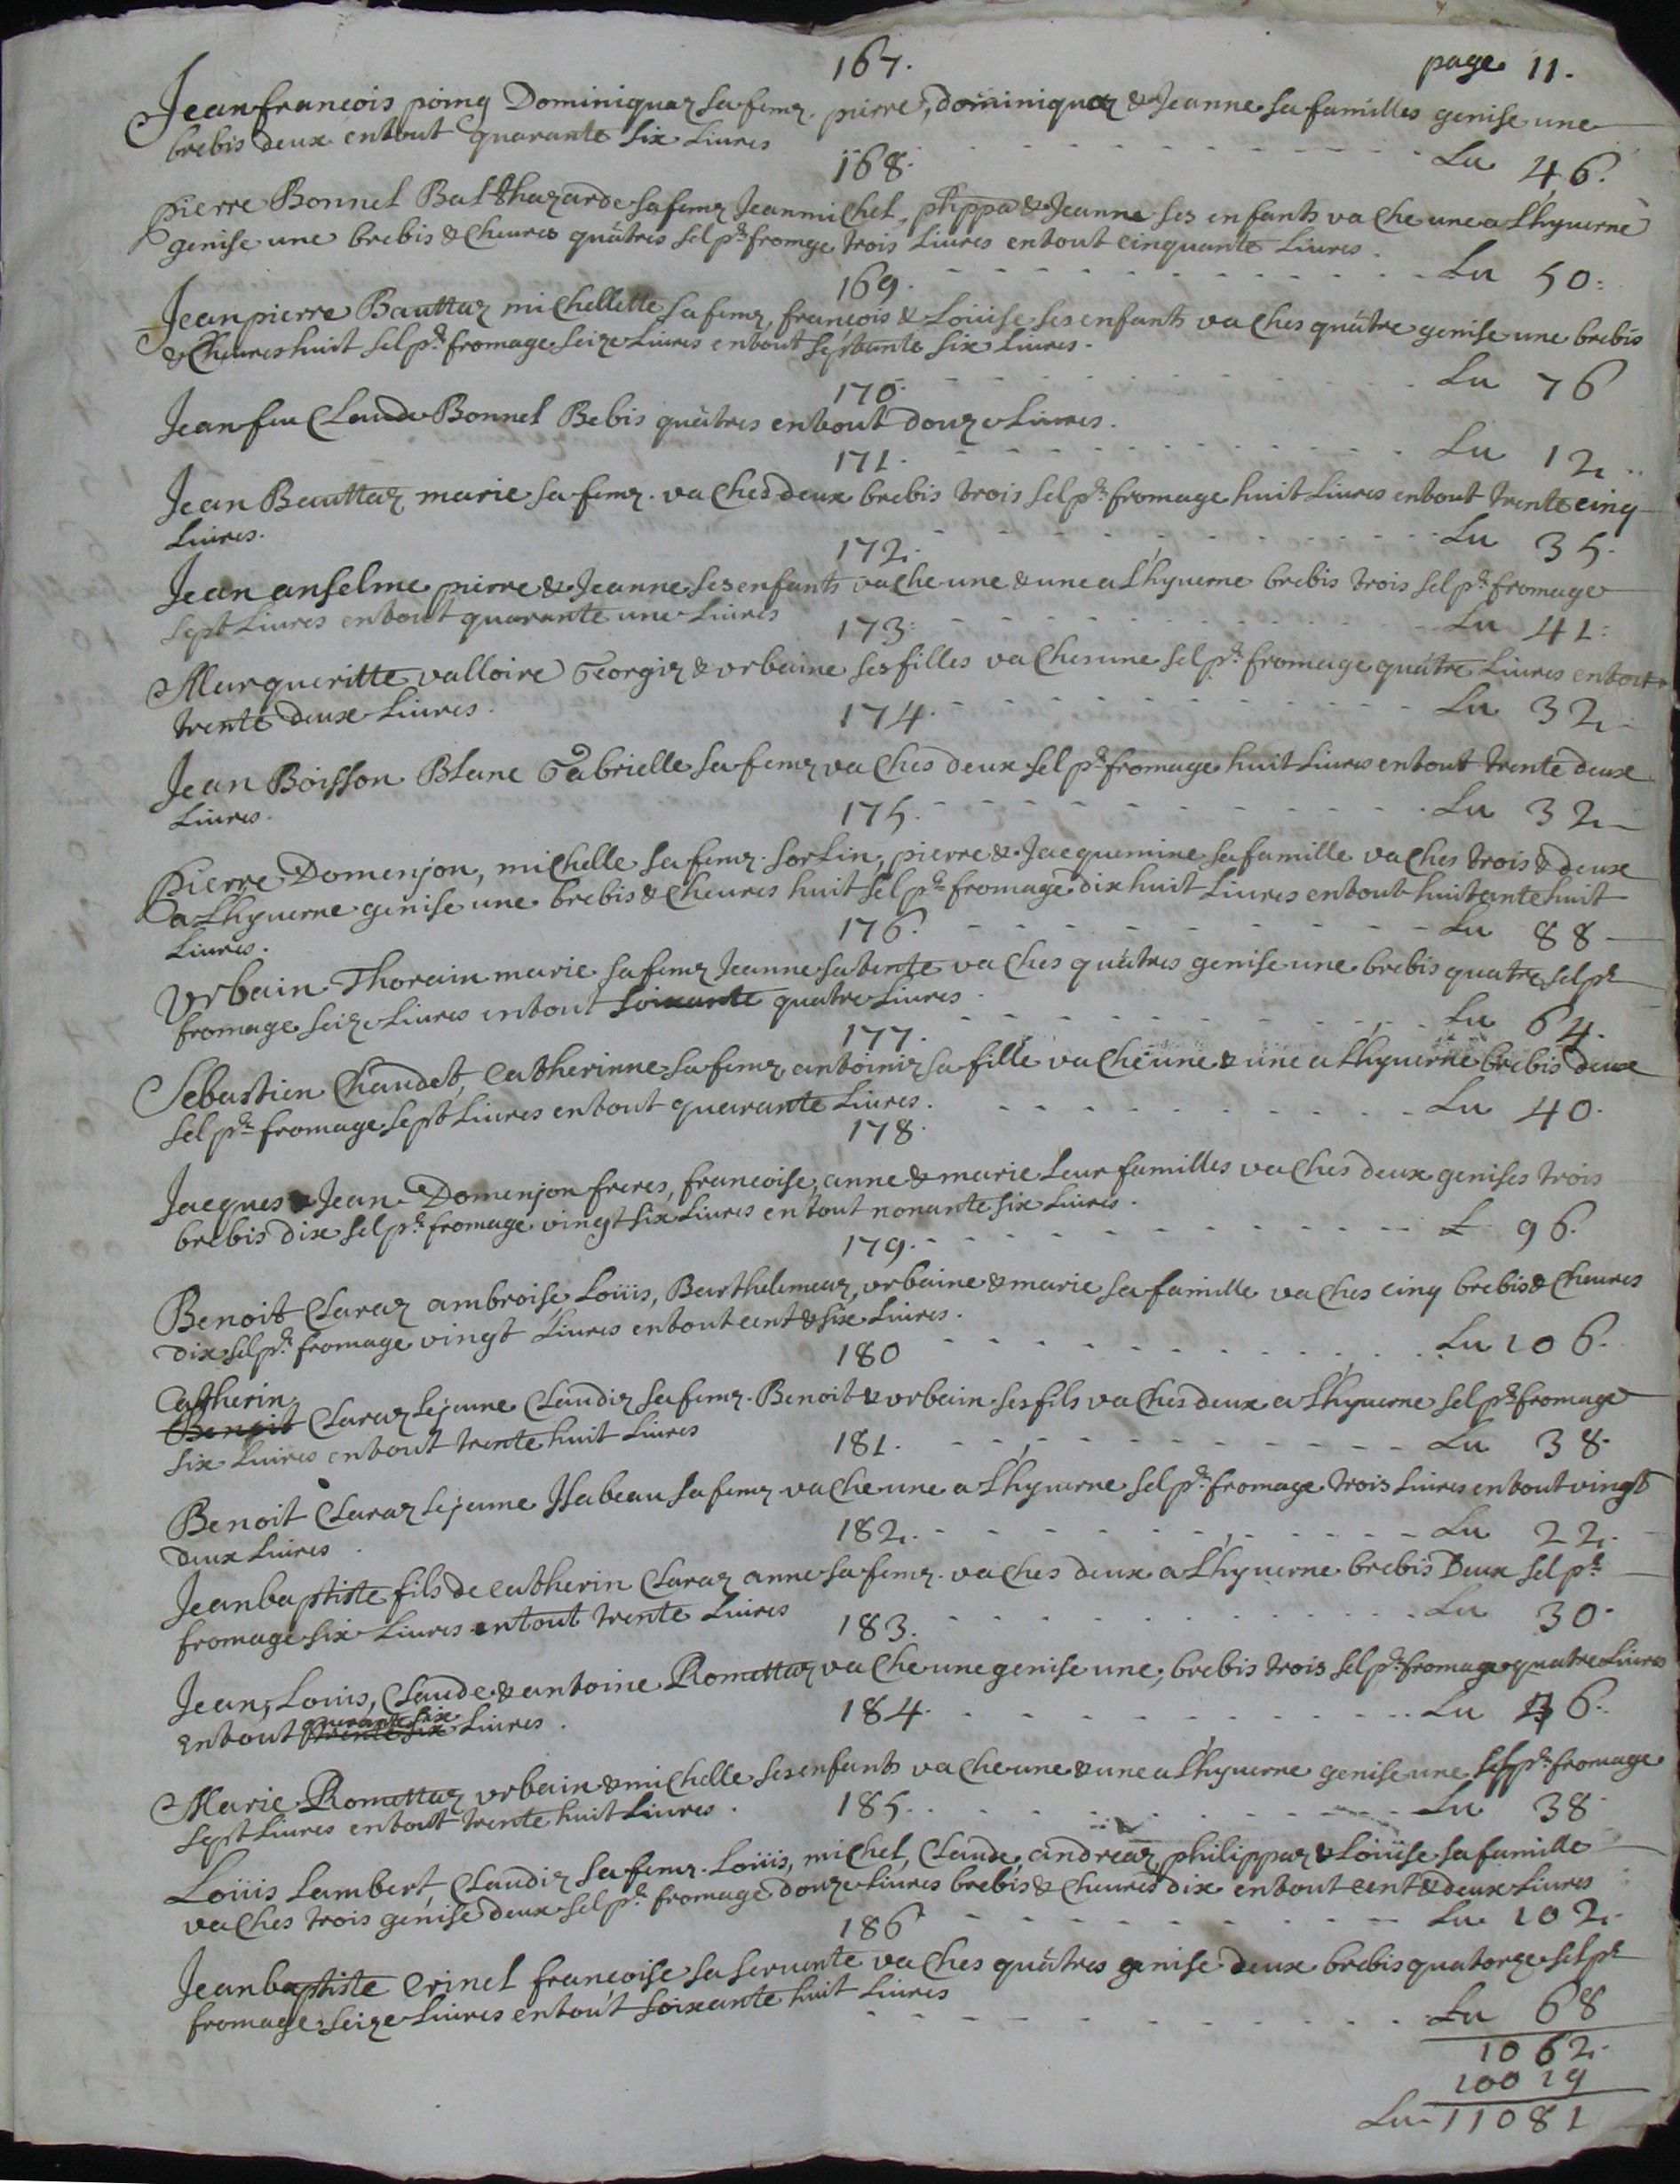 page 11.
167.
Jean francois poing Dominiquaz sa femz. pierre, dominiquaz & Jeanne sa familles genise une
brebis deux entout quarante six Liures
Lu 46.
168.
pierre Bonnel Balthazarde sa femz Jeanmichel, phippa & Jeanne ses enfants vache une a Lhyuerne
genise une brebis & cheures quâtres sel pr fromage trois Liures entout cinquante Liures.
Lu 50:
169.
Jean pierre Bauttaz michellette sa femz, francois & Loüise ses enfants vaches quâtre genise une brebis
& cheures huit sel pr fromage seize Liures entout septante six Liures.
Lu 76
170.
Jean feu Claude Bonnel Bebis quâtres entout douze Liures.
Lu 12
171.
Jean Bauttaz marie sa femz. vaches deux brebis trois sel pr fromage huit Liures entout trente cinq
Liures.
Lu 35.
172.
Jean anselme pierre & Jeanne ses enfants vache une & une a Lhyuerne brebis trois sel pr fromage
sept Liures entout quarante une Liures
Lu 41:
173:
Marqueritte valloire Georgiz & vrbaine ses filles vaches une sel pr fromage quâtre Liures entout
trente deux Liures.
Lu 32
174.
Jean Boisson Blanc Gabrielle sa femz vaches deux sel pr fromage huit Liures entout trente deux
Liures.
Lu 32
175.
Pierre Domenjon, michelle sa femz. sorlin, pierre & Jacquemine sa famille vaches trois & deux
a Lhyuerne genise une brebis & cheures huit sel pr fromage dix huit Liures entout huitante huit
Liures.
Lu 88
176.
Vrbain Thorain marie sa femz Jeanne sa tente vaches quâtres genise une brebis quatre sel pr
fromage seize Liures entout soixante quatre Liures.
Lu 64.
177.
Sebastien Chaudet, catherinne sa femz antoiniz sa fille vache une & une a Lhyuerne brebis deux
sel pr fromage sept Liures entout quarante Liures.
Lu 40.
178.
Jacques & Jean Domenjon freres, francoise, anne & marie Leur familles vaches deux genises trois
brebis dix sel pr fromage vingt six Liures entout nonante six Liures.
L 96.
179.
Benoit Claraz ambroise, Loüis, Barthelemeaz, vrbaine & marie sa famille vaches cinq brebis & cheures
dix sel pr fromage vingt Liures entout cent & six Liures.
Lu 106.
180
Catherin
Benoit Claraz Lejeune Claudiz sa femz. Benoit & vrbain ses fils vaches deux a Lhyuerne sel pr fromage
six Liures entout trente huit Liures
Lu 38.
181.
Benoit Claraz Lejeune Isabeau sa femz vache une a Lhyuerne sel pr fromage trois Liures entout vingt
deux Liures
Lu 22.
182.
Jeanbaptiste fils de catherin Claraz anne sa femz. vaches deux a Lhyuerne brebis Deux sel pr
fromage six Liures entout trente Liures
Lu 30.
183.
Jean, Louis, Claude & antoine Romettaz vache une genise une, brebis trois sel pr fromage quatre Liures
quarante six
entout trente six Liures.
Lu 46.
184.
Marie Romettaz vrbain & michelle ses enfants vache une & une a Lhyuerne genise une sel pr fromage
sept Liures entout trente huit Liures.
Lu 38
185.
Loüis Lambert, Claudiz sa femz. Loüis, michel, Claude, andreaz, philippaz & Loüise sa famille
vaches trois genise deux sel pr fromage douze Liures brebis & cheures dix entout cent & deux Liures
Lu 102.
186
Jeanbaptiste crinel francoise sa seruente vaches quâtres genise deux brebis quatorze sel pr
fromage seize Liures entout soixante huit Liures
Lu 68
1062.
10019
Lu 11081